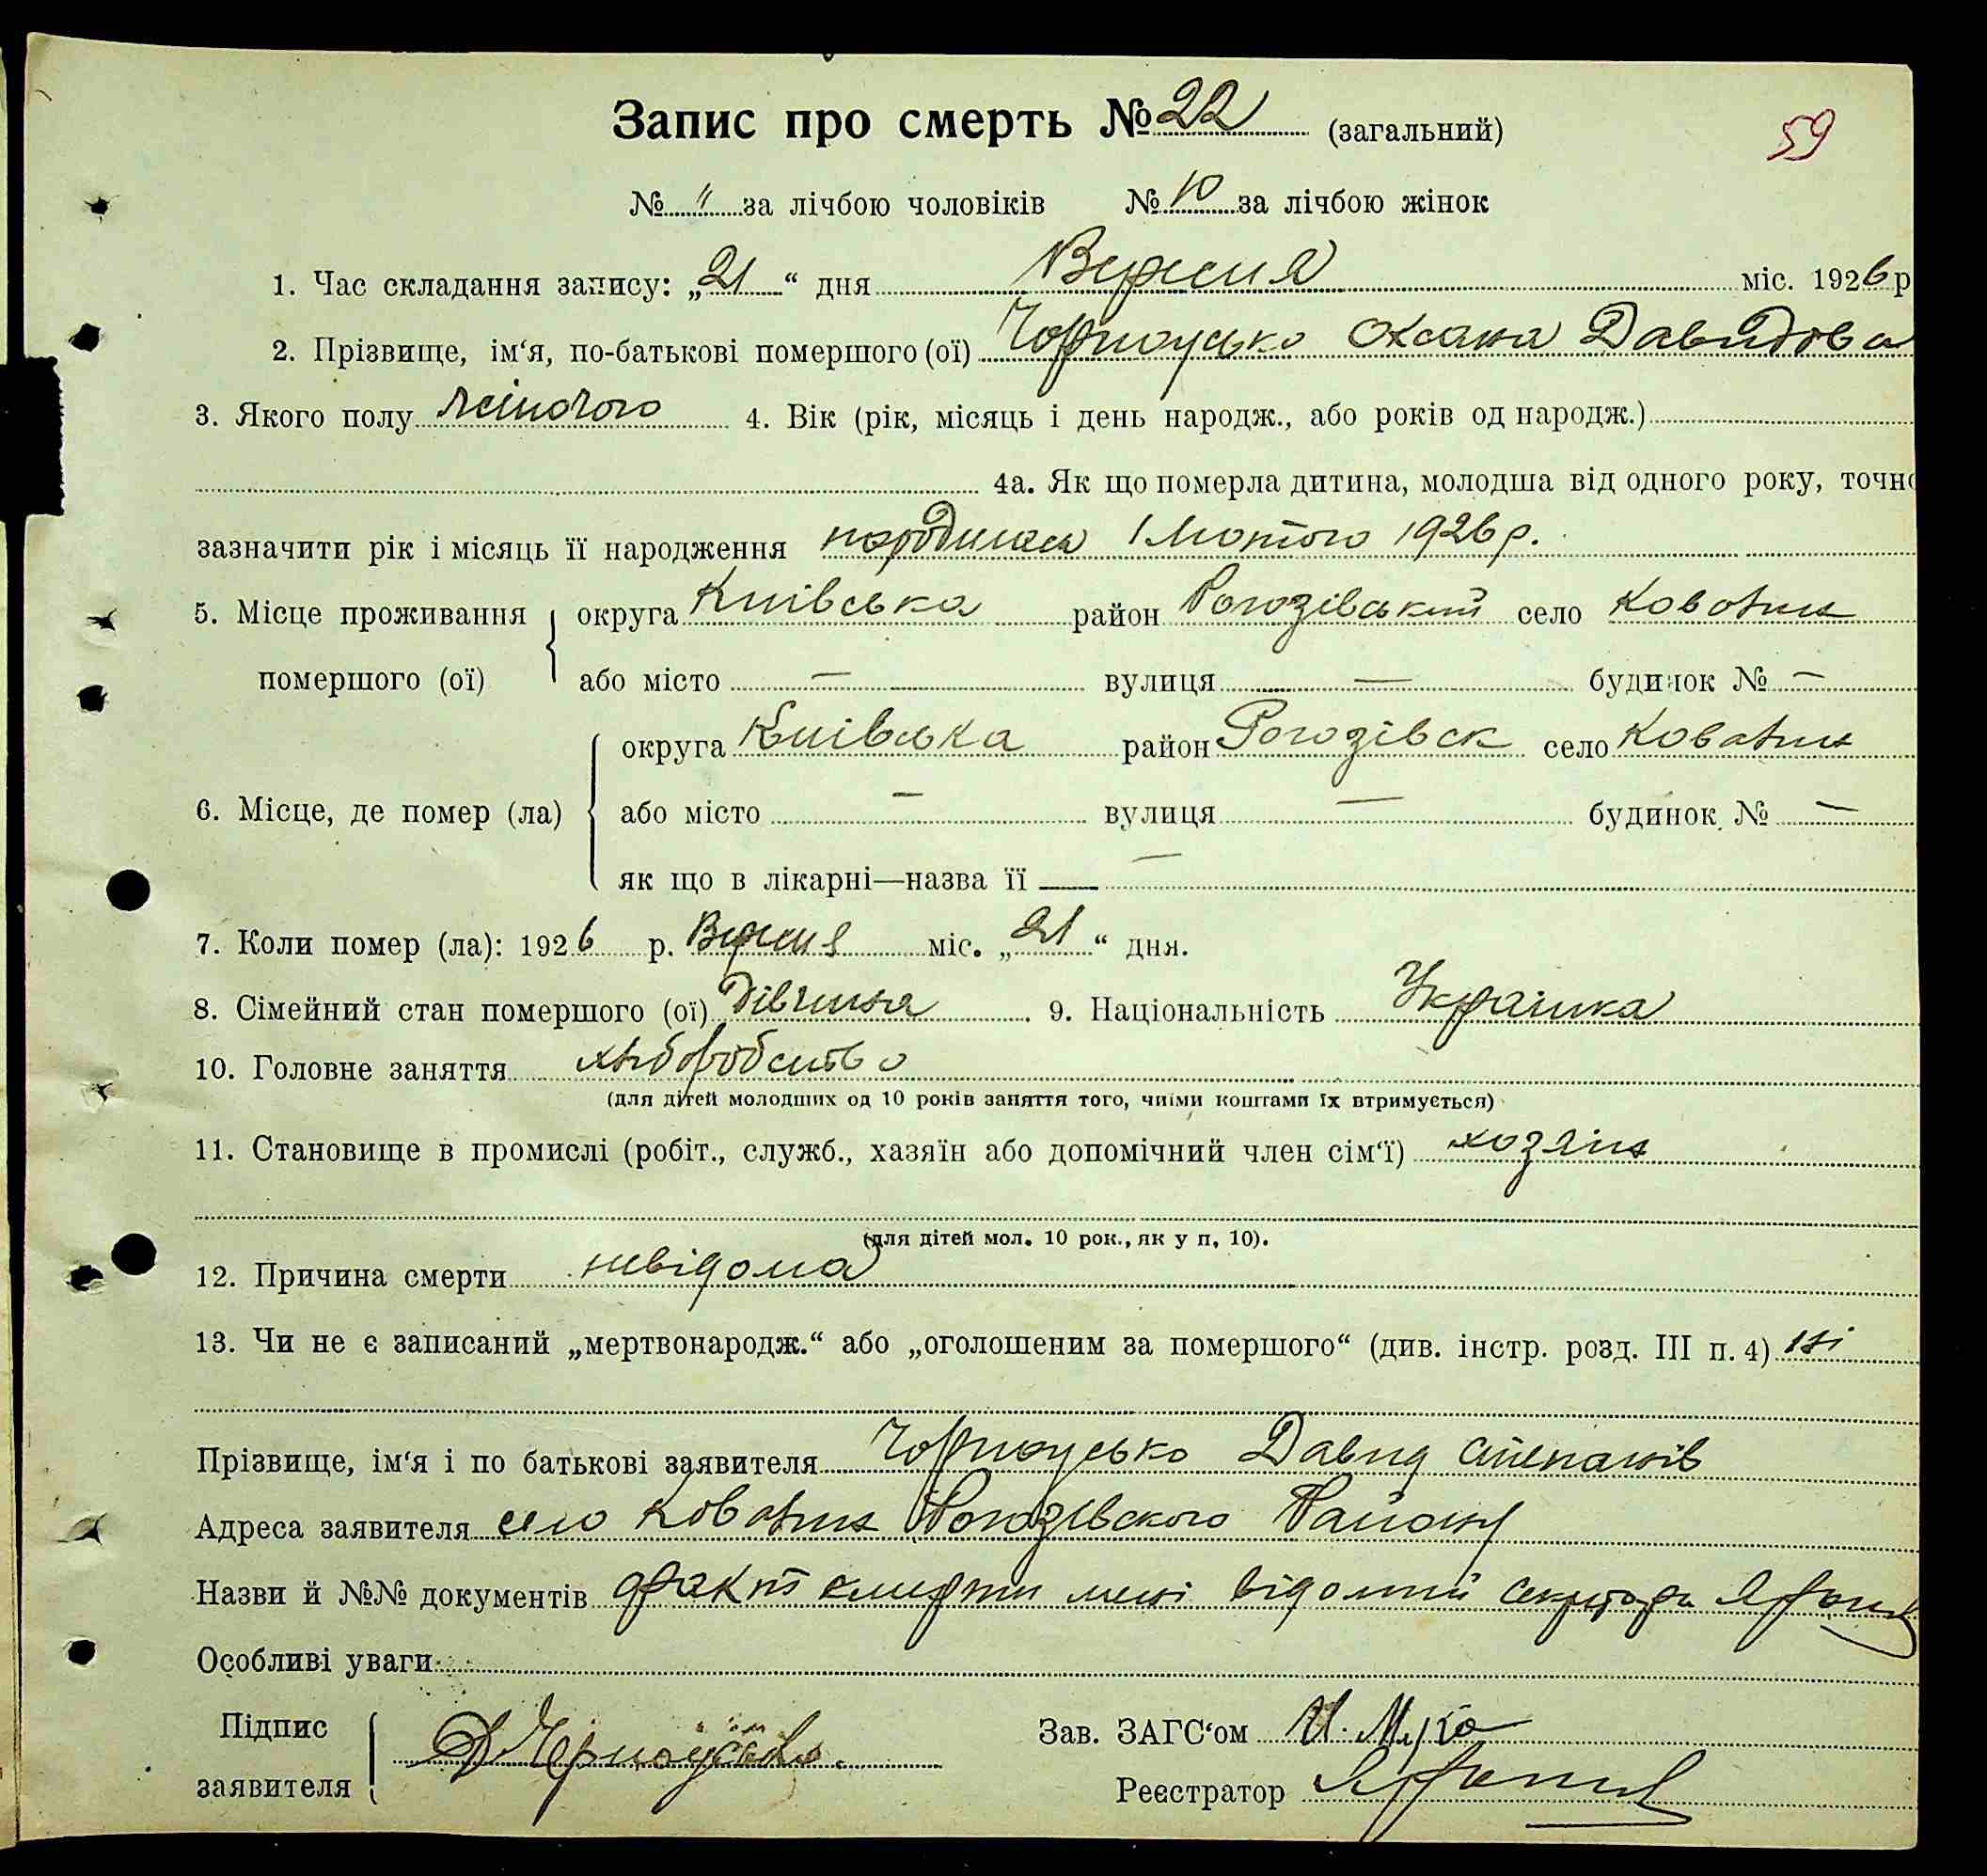 Запис про смерть № 22 (загальний)
59
№ " за лічбою чоловіків № 10 за лічбою жінок
1. Час складання запису: „21“ дня Вересня міс. 1926 р
2. Прізвище, ім‘я, по-батькові помершого (ої) Чорноусько Оксана Давидова
3. Якого полу жіночого 4. Вік (рік, місяць і день народж., або років од народж.)
4а. Як що померла дитина, молодша від одного року, точно
зазначити рік і місяць її народження народилася 1 Лютого 1926 р.
5. Місце проживання округа Київська район Рогозівський село Ковалин
помершого (ої) або місто — вулиця — будинок № —
округа Київська район Рогозівск село Ковалин
6. Місце, де помер (ла) або місто — вулиця — будинок № —
як що в лікарні—назва її —
7. Коли помер (ла): 1926 р. Вересня міс. „21“ дня.
8. Сімейний стан помершого (ої) дівчина 9. Національність Українка
10. Головне заняття хліборобство
(для дітей молодших од 10 років заняття того, чиїми коштами їх втримується)
11. Становище в промислі (робіт., служб., хазяїн або допомічний член сім‘ї) хозяїн
(для дітей мол. 10 рок., як у п, 10).
12. Причина смерти невідома
13. Чи не є записаний „мертвонародж.“ або „оголошеним за помершого“ (див. інстр. розд. III п. 4) ні
Прізвище, ім‘я і по батькові заявителя Чорноусько Давид Степанів
Адреса заявителя село Ковалин Рогозівского Району
Назви й №№ документів факт смерти мені відомий секретарь
Особливі уваги
Підпис Зав. ЗАГС‘ом И.
заявителя Д Чорноусько Реєстратор